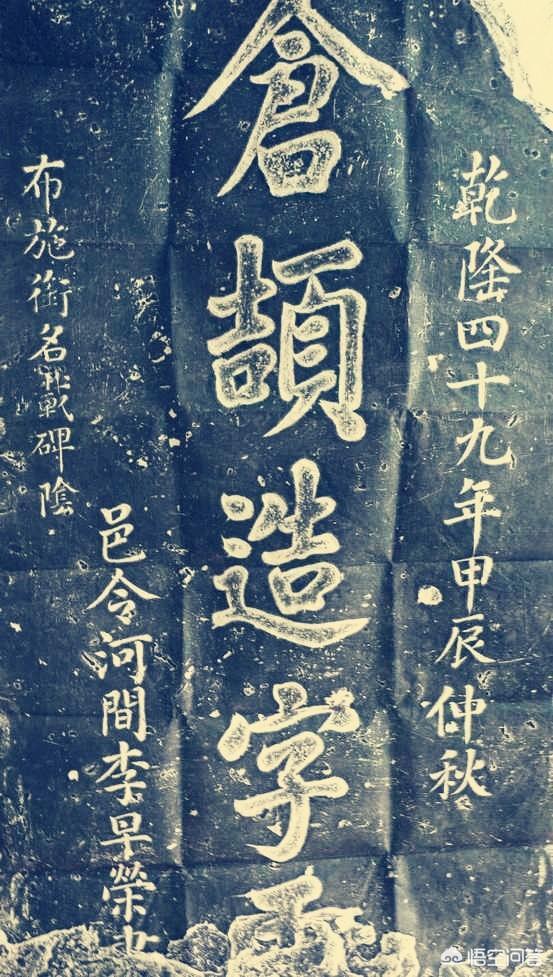 乾隆四十九年甲辰仲秋
倉頡造字
邑令河間李早榮
布施銜名載碑陰
悟空问答